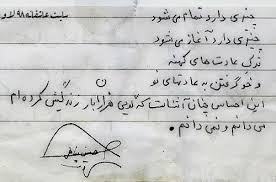 سایت عاشقانه ۹۸ لاو
چیزی دارد تمام می شود
چیزی دارد آغاز می شود
ترک عادت های کهنه
و خو گرفتن به عادتهای نو
این احساس چنان آشناست که گویی هزار بار زندگیش کرده ام
می دانم و نمی دانم.
حسین پناهی